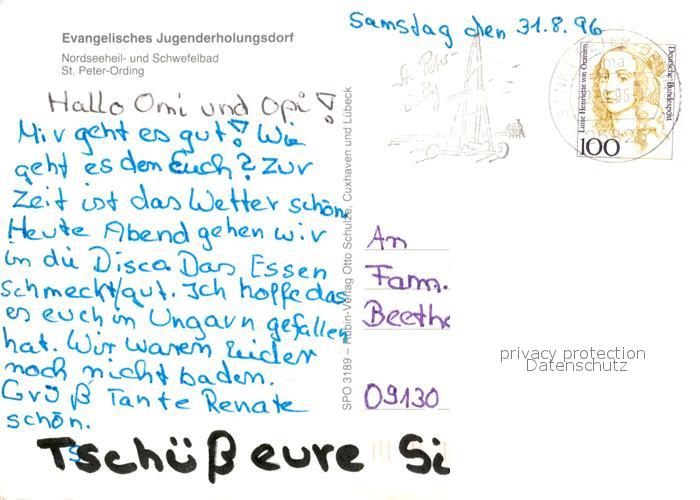 Samstag den 31.8.96
Evangelisches Jugenderholungsdorf
Nordseeheil- und Schwefelbad
St. Peter-Ording
Hallo Omi und Opi!
Mir geht es gut! Wie
geht es den Euch? Zur
Zeit ist das Wetter schön.
Heute Abend gehen wir
in die Disco. Das Essen
schmeckt gut. Ich hoffe das
es euch in Ungarn gefallen
hat. Wir waren leider
noch nicht baden.
Grüß Tante Renate
schön.
Tschüß eure Si
SPO 3189 – Rubin-Verlag Otto Schulze, Cuxhaven und Lübeck
St. Peter-
Luise Henriette von Oranien
Deutsche Bundespost
100
An
Fam.
Beetho
09130
privacy protection
Datenschutz